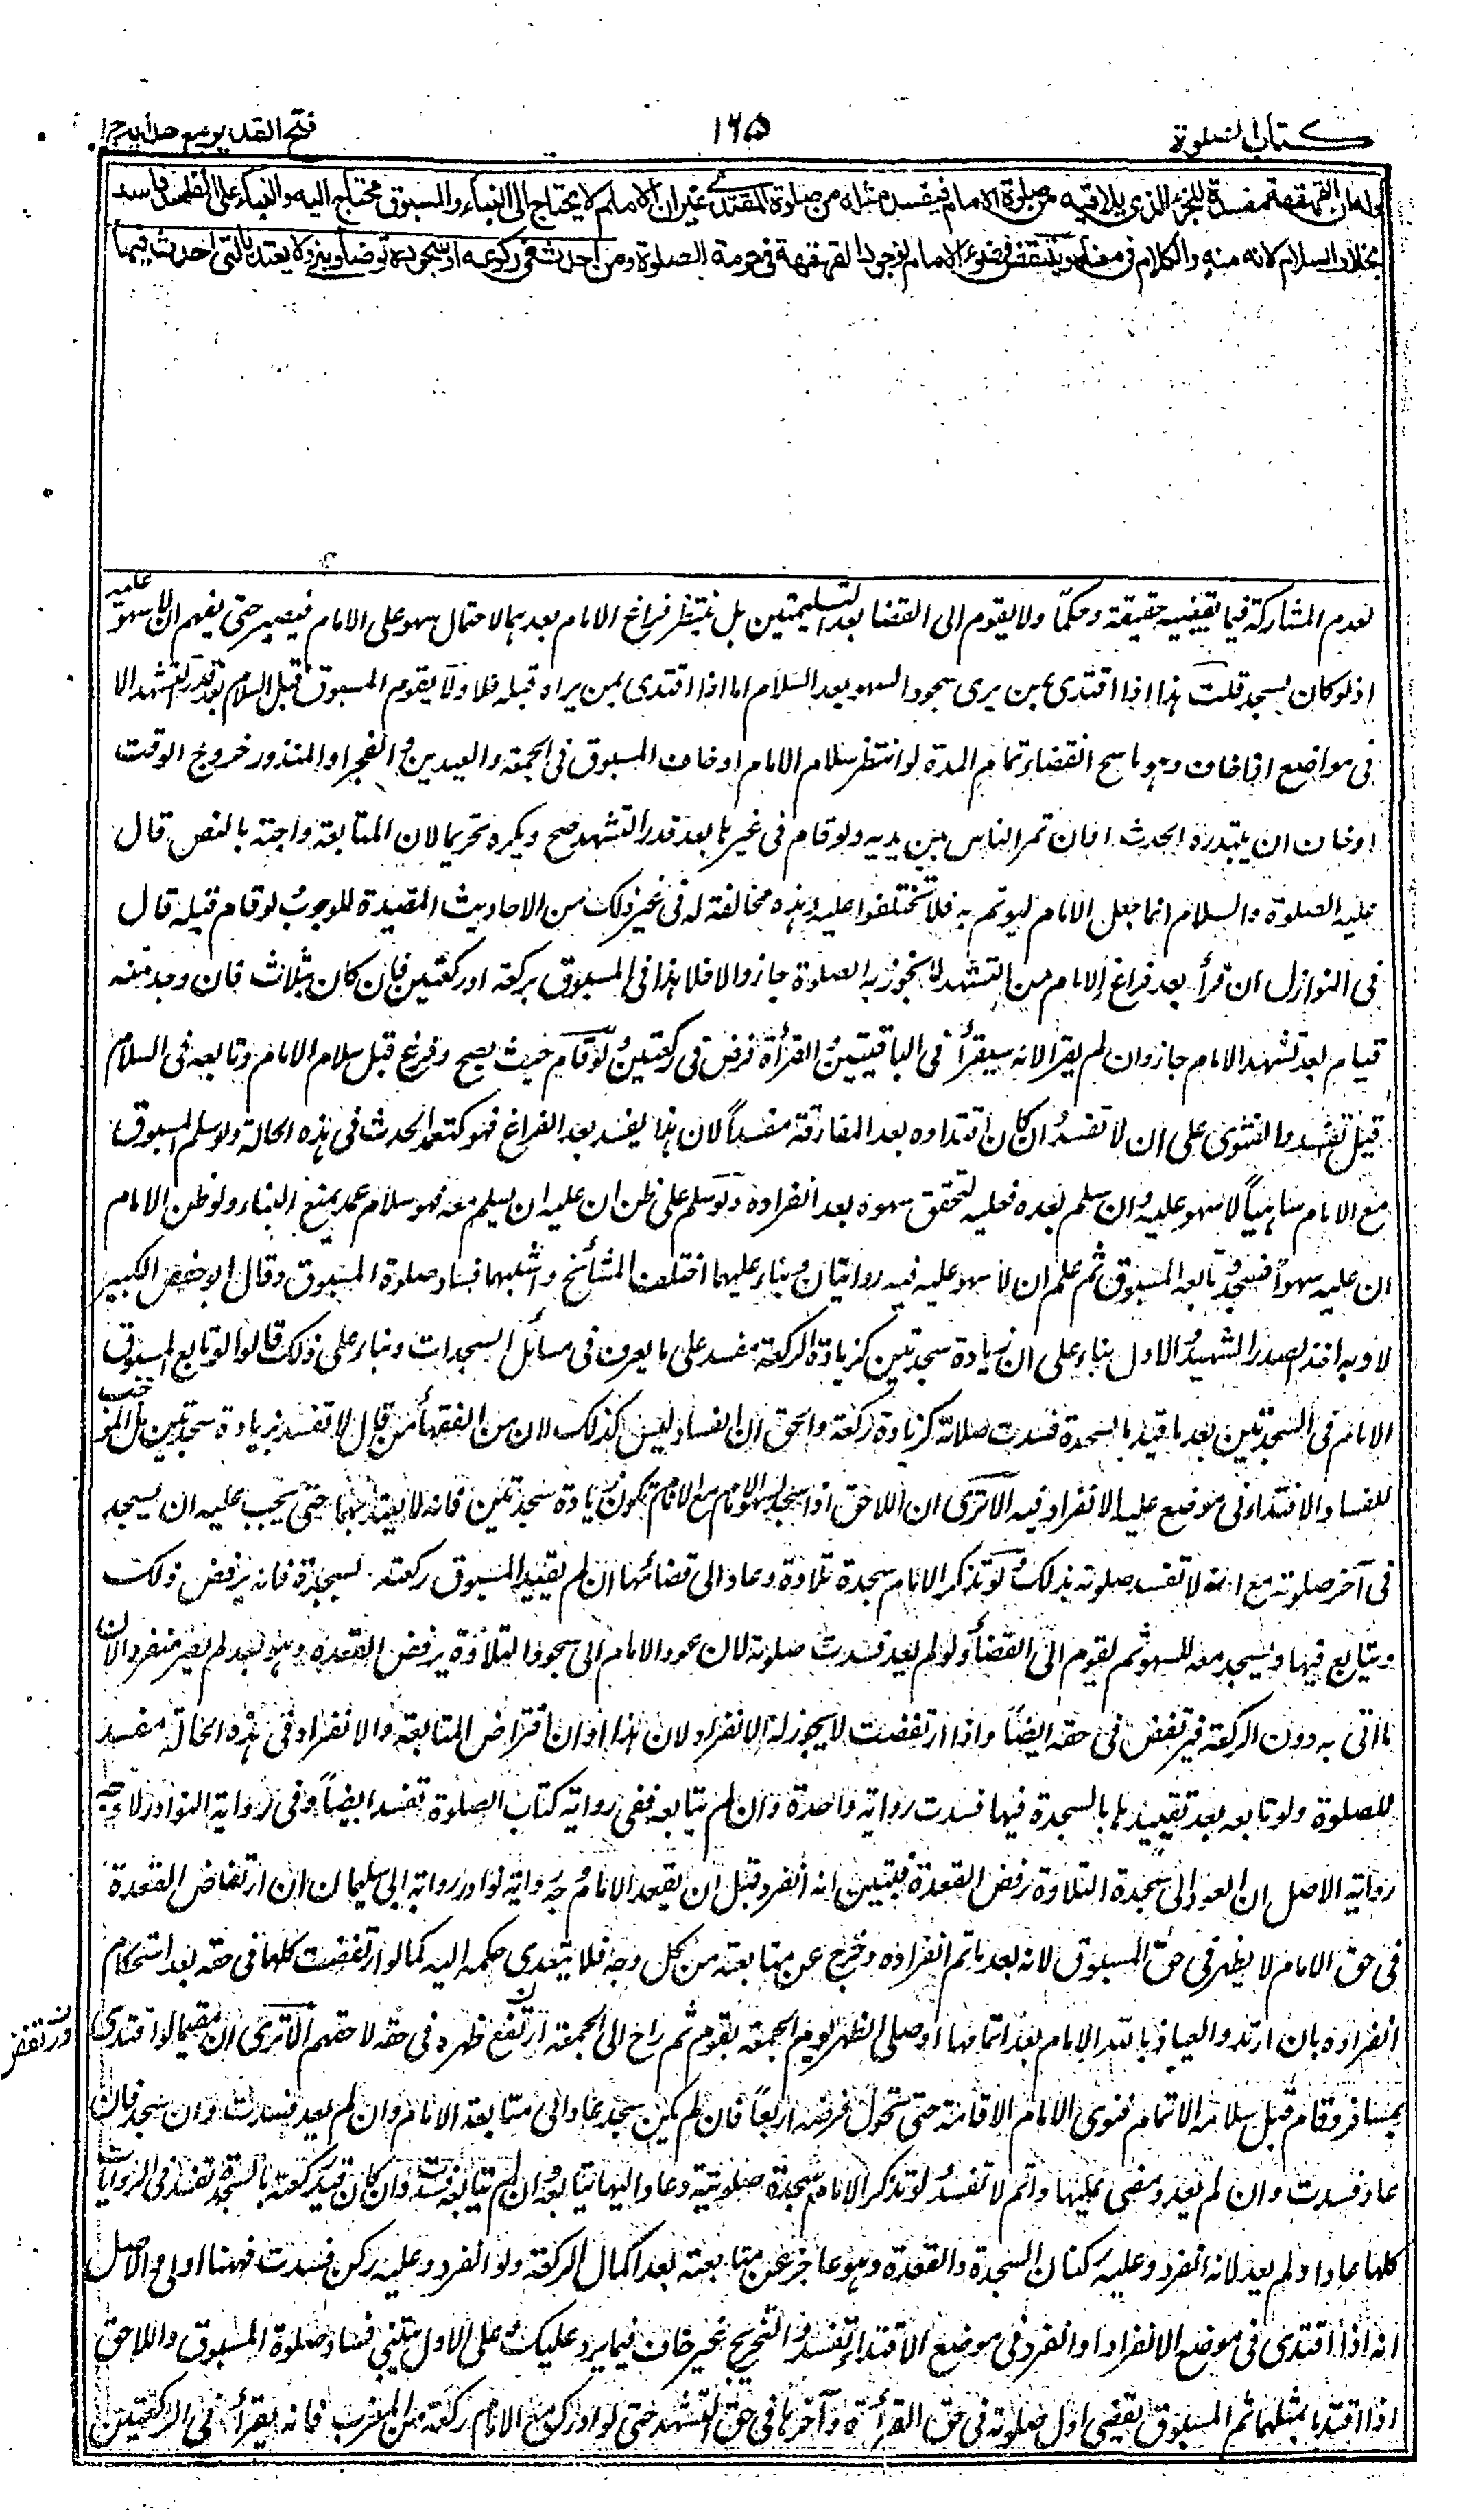 كتاب الصلوة
١٦۵
فتح القدير مع هدايه ج١
وله ان القهقهة مفسدة للجزء الذى يلاقيه من صلوة الامام فيفسد مثله من صلوة المقتدى غير ان الامام لا يحتاج الى البناء والمسبوق محتاج اليه والبناء على الفاسد فاسد
بخلاف السلام لانه منه والكلام فى معناه وينتقض وضوء الامام لوجود القهقهة فى حرمة الصلوة ومن احدث فى ركوعه او سجوده توضأ وبنى ولا يعتد بالتى احدث فيها
لعدم المشاركة فيما يقضيه حقيقة وحكمًا ولا يقوم الى القضا بعد التسليمتين بل ينتظر فراغ الامام بعدهما لاحتمال سهو على الامام فيصبر حتى يفهم ان لا سهو عليه
اذ لو كان لسجد قلت هذا اذا اقتدى بمن يرى سجود السهو بعد السلام اما اذا اقتدى بمن يراه قبله فلا ولا يقوم المسبوق قبل السلام بعد قدر التشهد الا
فى مواضع اذا خاف وهو ماسح انقضاء تمام المدة لو انتظر سلام الامام او خاف المسبوق فى الجمعة والعيدين والفجر او المعذور خروج الوقت
او خاف ان يبتدره الحدث او ان تمر الناس بين يديه ولو قام فى غيرها بعد قدر التشهد صح ويكره تحريما لان المتابعة واجبة بالنص قال
عليه الصلوة والسلام انما جعل الامام ليؤتم به فلا تختلفوا عليه وهذه مخالفة له فى غير ذلك من الاحاديث المفيدة للوجوب لو قام قبله قال
فى النوازل ان قرأ بعد فراغ الامام من التشهد ما يجوز به الصلوة جاز والا فلا هذا فى المسبوق بركعة او ركعتين فان كان بثلاث فان وجد منه
قيام بعد تشهد الامام جاز وان لم يقرأ لانه سيقرأ فى الباقيتين والقرأة فرض فى ركعتين ولو قام حيث يصح وفرغ قبل سلام الامام وتابعه فى السلام
قيل تفسد والفتوى على ان لا تفسد وان كان اقتداوه بعد المفارقة مفسداً لان هذا يفسد بعد الفراغ فهو كتعمد الحدث فى هذه الحالة ولو سلم المسبوق
مع الامام ساهياً لا سهو عليه وان سلم بعده فعليه لتحقق سهوه بعد انفراده ولو سلم على ظن ان عليه ان يسلم معه فهو سلام عمد يمنع البناء ولو ظن الامام
ان عليه سهواً فسجد وتابعه المسبوق ثم علم ان لا سهو عليه فيه روايتان وبناء عليهما اختلف المشائخ واشبههما فساد صلوة المسبوق وقال ابو حفص الكبير
لا وبه اخذ الصدر الشهيد والاول بناء على ان زيادة سجدتين كزيادة الركعة مفسد على ما يعرف فى مسائل السجدات وبناء على ذلك قالوا لو تابع المسبوق
الامام فى السجدتين بعد ما قيد بالسجدة فسدت صلاته كزيادة ركعة والحق ان الفساد ليس كذلك لان من الفقهاء من قال لا تفسد بزيادة سجدتين بل الموجب
للفساد الاقتداء فى موضع عليه الانفراد فيه الا ترى ان اللاحق اذا سجد لسهو الامام مع الامام تكون زيادة سجدتين فانه لا يعتد بهما حتى يجب عليه ان يسجد
فى آخر صلوته مع انه لا تفسد صلوته بذلك ولو تذكر الامام سجدة تلاوة وعاد الى قضائها ان لم يقيد المسبوق ركعته بسجدة فانه يرفض ذلك
ويتابع فيها ويسجد معه للسهو ثم يقوم الى القضاء ولو لم يعد فسدت صلوته لان عود الامام الى سجود التلاوة يرفض القعدة وهو بعد لم يصر منفردا لان
ما اتى به دون الركعة فيرتفض فى حقه ايضاً واذا ارتفضت لا يجوز له الانفراد لان هذا اوان افتراض المتابعة والانفراد فى هذه الحالة مفسد
للصلوة ولو تابعه بعد تقييدها بالسجدة فيها فسدت رواية واحدة وان لم يتابعه ففى رواية كتاب الصلوة تفسد ايضاً وفى رواية النوادر لا وجه
رواية الاصل ان العود الى سجدة التلاوة يرفض القعدة فيتبين انه انفرد قبل ان يقعد الامام وجه رواية نوادر رواية ابى سليمان ان ارتفاض القعدة
فى حق الامام لا يظهر فى حق المسبوق لانه بعد ما تم انفراده وخرج عن متابعته من كل وجه فلا يتعدى حكمه اليه كما لو ارتفضت كلها فى حقه بعد استحكام
انفراده بان ارتد والعياذ بالله الامام بعد اتمامها او صلى الظهر يوم الجمعة بقوم ثم راح الى الجمعة ارتفض ظهره فى حقه لا حقهم الا ترى ان مقيما لو اقتدى
بمسافر وقام قبل سلامه للاتمام فنوى الامام الاقامة حتى تحول فرضه اربعاً فان لم يكن سجد عاد الى متابعة الامام وان لم يعد فسدت وان سجد فان
عاد فسدت وان لم يعد ومضى عليها واتم لا تفسد ولو تذكر الامام سجدة صلوتية وعاد اليها يتابعه وان لم يتابعه فسدت وان كان قيد ركعته بالسجدة تفسد فى الروايات
كلها عاد او لم يعد لانه انفرد وعليه ركنان السجدة والقعدة وهو عاجز عن متابعته بعد اكمال الركعة ولو انفرد وعليه ركن فسدت فهنا اولى والاصل
انه اذا اقتدى فى موضع الانفراد او انفرد فى موضع الاقتداء تفسد والتخريج غير خاف فيما يرد عليك على الاول يبتنى فساد صلوة المسبوق واللاحق
اذا اقتديا بمثلهما ثم المسبوق يقضى اول صلوته فى حق القرأة وآخرها فى حق التشهد حتى لو ادرك مع الامام ركعة من المغرب فانه يقرأ فى الركعتين